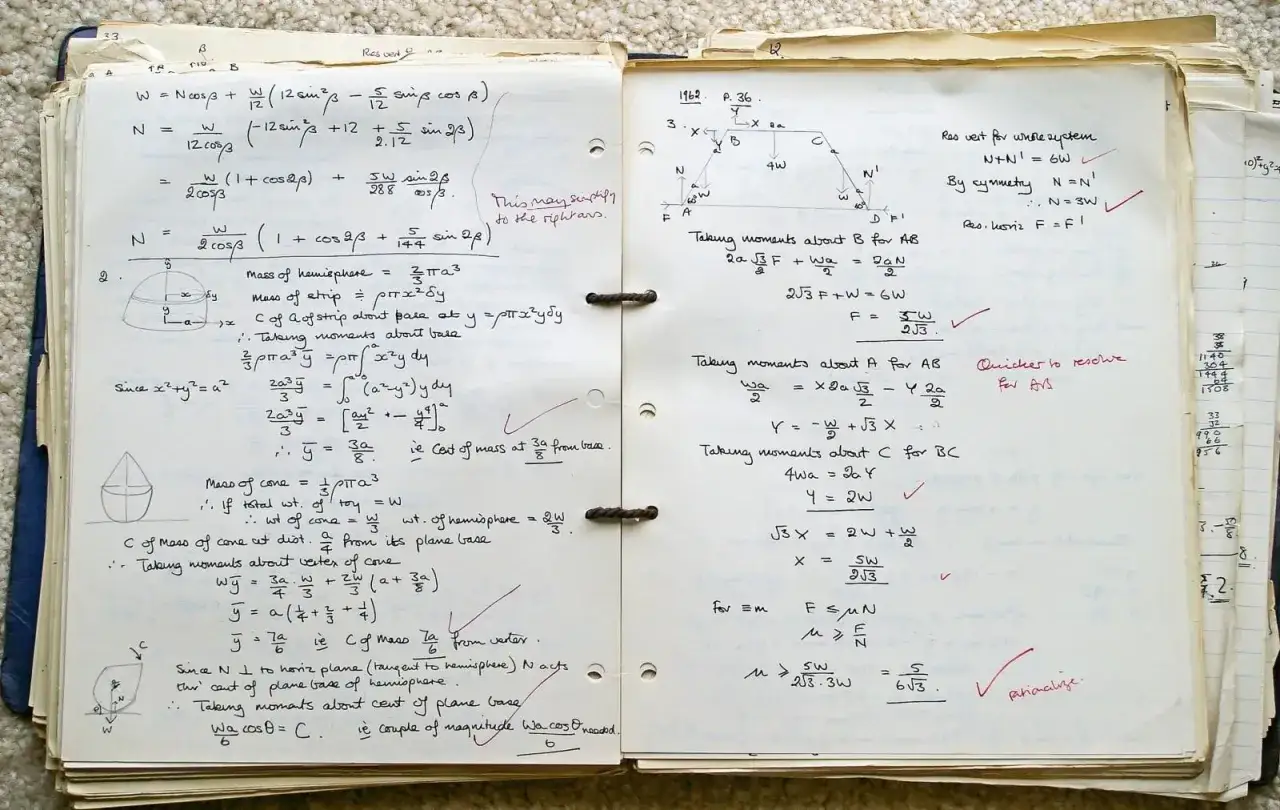 33
β
Res vert
A
B
W = Ncosβ + W/12 (12sin²β − 5/12 sinβ cosβ)
N = W/12cosβ (−12sin²β + 12 + 5/2.12 sin2β)
= W/2cosβ (1 + cos2β) + 5W/288 sin2β/cosβ.
This may simplify
to the right ans.
N = W/2cosβ (1 + cos2β + 5/144 sin2β)
2.
y
x δy
y
a x
Mass of hemisphere = 2/3 πa³
Mass of strip ≑ ρπx²δy
C of G of strip about base at y = ρπx²yδy
∴ Taking moments about base
2/3 ρπa³ȳ = ρπ∫₀ᵃ x²y dy
Since x²+y²=a² 2a³ȳ/3 = ∫₀ᵃ (a²−y²)y dy
2a³ȳ/3 = [ay²/2 + − y⁴/4]₀ᵃ
∴ ȳ = 3a/8 ie Cent of mass at 3a/8 from base.
Mass of cone = 1/3 ρπa³
∴ If total wt. of toy = W
∴ wt of cone = W/3 wt. of hemisphere = 2W/3.
C of Mass of cone at dist. a/4 from its plane base
∴ Taking moments about vertex of cone
Wȳ = 3a/4 . W/3 + 2W/3 (a + 3a/8)
ȳ = a(1/4 + 2/3 + 1/4)
ȳ = 7a/6 ie C of Mass 7a/6 from vertex.
C
θ
N
W
Since N ⊥ to horiz plane (tangent to hemisphere) N acts
thro' cent of plane base of hemisphere.
∴ Taking moments about cent of plane base
Wa/6 cosθ = C. ie couple of magnitude Wa cosθ/6 needed.
12.
1962 P. 36.
3.
Y
X X 2a
Y B C
a 4W
N N'
a W W a
60° 60°
F A D F'
Res vert for whole system
N+N' = 6W
By symmetry N = N'
∴ N = 3W
Res. horiz F = F'
Taking moments about B for AB
2a √3/2 F + Wa/2 = 2aN/2
2√3 F + W = 6W
F = 5W/2√3.
Taking moments about A for AB
Quicker to resolve
for AB
Wa/2 = X 2a √3/2 − Y 2a/2
Y = −W/2 + √3 X
Taking moments about C for BC
4Wa = 2aY
Y = 2W
√3 X = 2W + W/2
X = 5W/2√3
For ≡m F ≤ μN
μ ≥ F/N
μ ≥ 5W/2√3.3W = 5/6√3.
rationalize.
38
38
1140
304
1444
64
1508
33
32
990
66
956
8.
2.